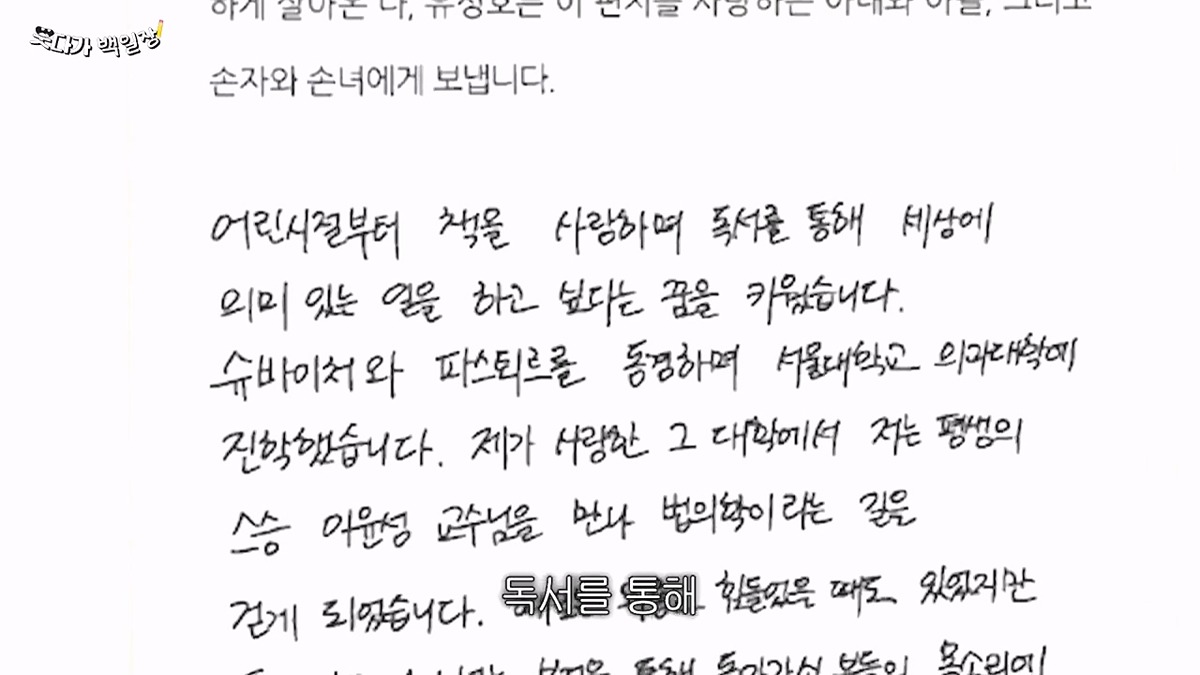 웃다가 백일장
하게 살아온 나, 유성호는 이 편지를 사랑하는 아내와 아들, 그리고
손자와 손녀에게 보냅니다.
어린시절부터 책을 사랑하며 독서를 통해 세상에
의미 있는 일을 하고 싶다는 꿈을 키웠습니다.
슈바이처와 파스퇴르를 동경하며 서울대학교 의과대학에
진학했습니다. 제가 사랑한 그 대학에서 저는 평생의
스승 이윤성 교수님을 만나 법의학이라는 길을
걷게 되었습니다. 힘들었을 때도 있었지만
독서를 통해
부검을 통해 돌아가신 분들의 목소리에